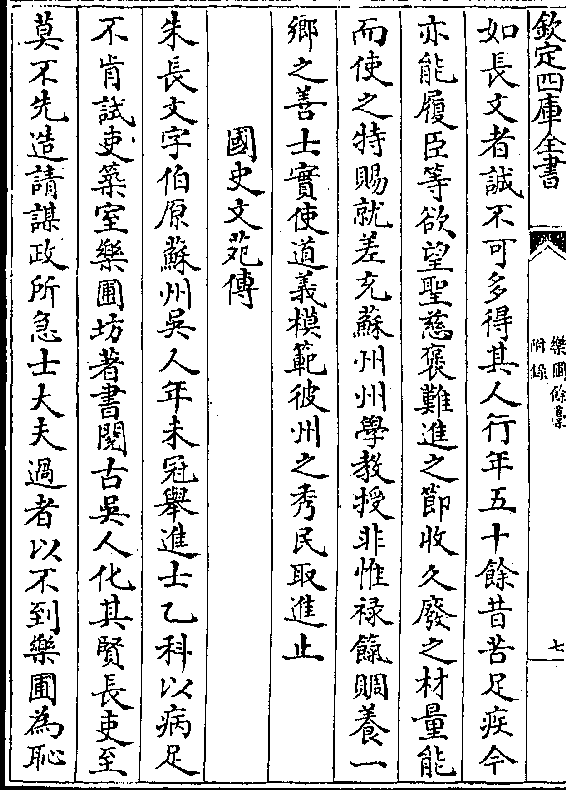 欽定四庫全書
樂圃餘藁
附錄
七
如長文者誠不可多得其人行年五十餘昔苦足疾今
亦能履臣等欲望聖慈褒難進之節收久廢之材量能
而使之特賜就差充蘇州州學教授非惟禄餼賙養一
鄉之善士實使道義模範彼州之秀民取進止
國史文苑傳
朱長文字伯原蘇州吳人年未冠舉進士乙科以病足
不肯試吏築室樂圃坊著書閱古吳人化其賢長吏至
莫不先造請謀政所急士大夫過者以不到樂圃為恥